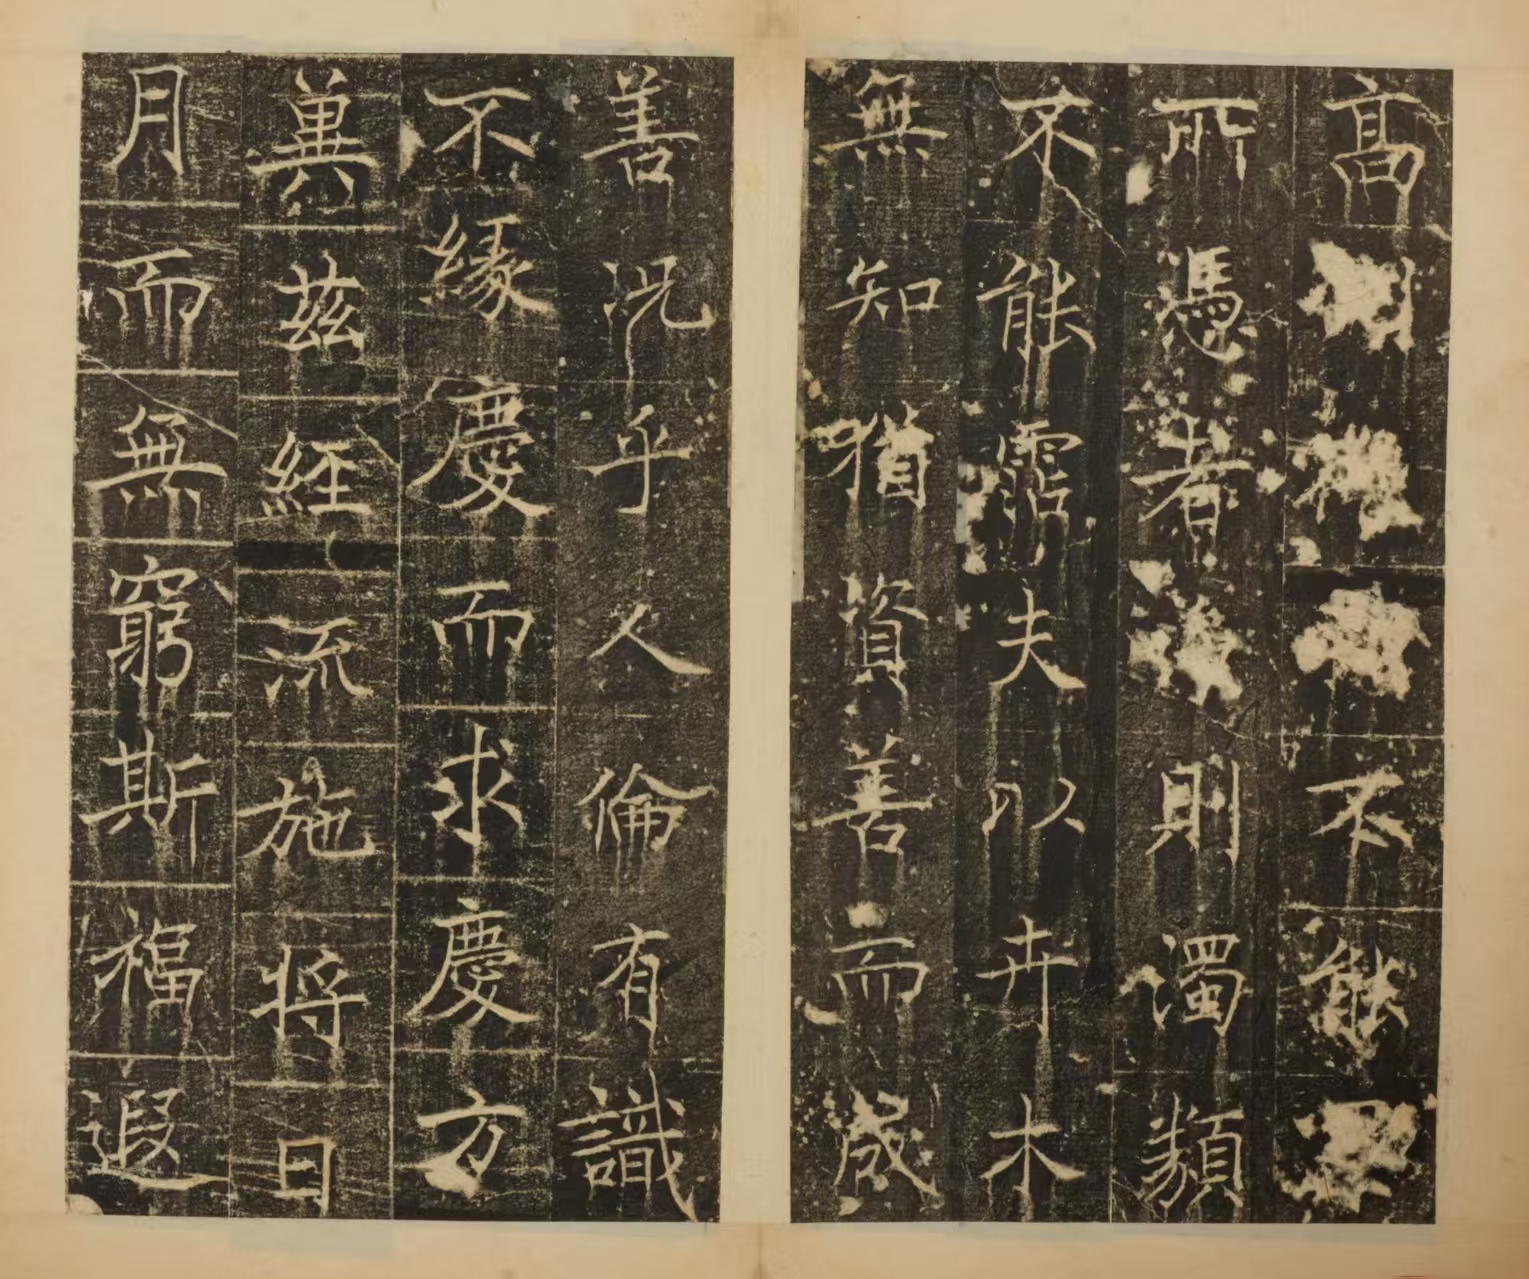 高則不能
所憑者則濁類
不能霑夫以卉木
無知猶資善而成
善況乎人倫有識
不緣慶而求慶方
冀茲經流施將日
月而無窮斯福遐